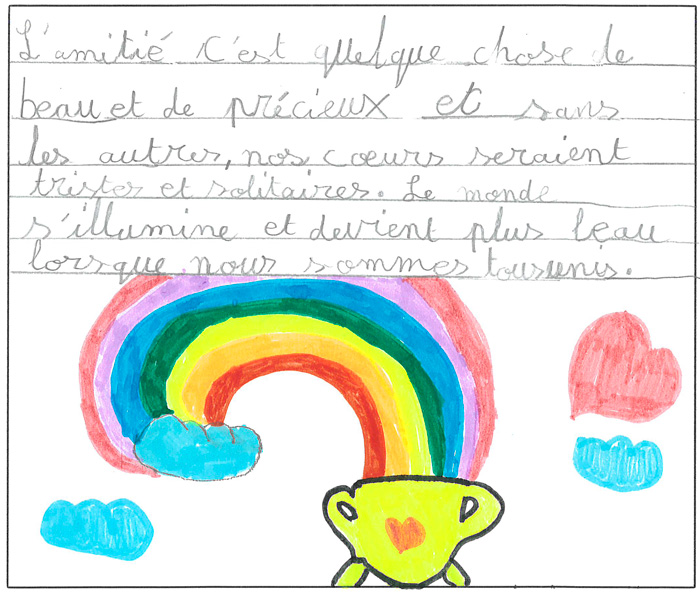 L'amitié c'est quelque chose de
beau et de précieux et sans
les autres, nos cœurs seraient
tristes et solitaires. Le monde
s'illumine et devient plus beau
lorsque nous sommes tous unis.